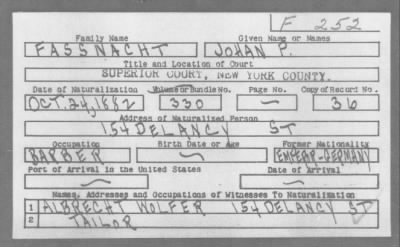 F 252
Family Name Given Name or Names
FASSNACHT JOHAN P.
Title and Location of Court
SUPERIOR COURT, NEW YORK COUNTY.
Date of Naturalization Volume or Bundle No. Page No. Copy of Record No.
OCT. 24, 1882 330 — 36
Address of Naturalized Person
154 DELANCY ST
Occupation Birth Date or Age Former Nationality
BARBER — EMPEAR-GERMANY
Port of Arrival in the United States Date of Arrival
— —
Names, Addresses and Occupations of Witnesses To Naturalization
1 ALBRECHT WOLFER 154 DELANCY ST
2 TAILOR